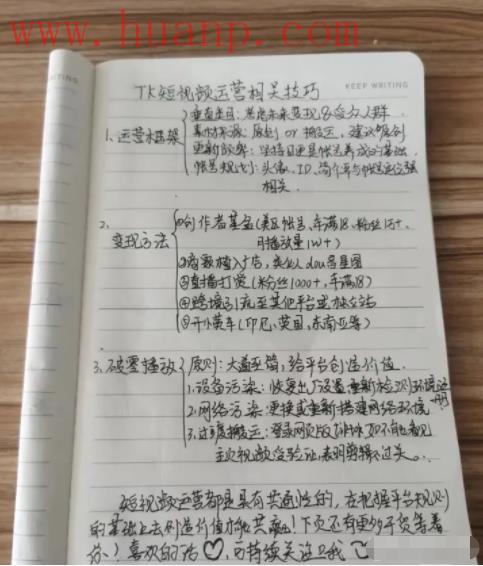 www.huanp.com
WRITING
KEEP WRITING
TK短视频运营相关技巧
1、运营框架
垂直类目:考虑未来变现&受众人群
素材来源:原创 or 搬运,建议原创
更新频率:坚持日更是帐号养成的基础
帐号规划:头像、ID、简介等与帐号定位强
相关.
2、
变现方法
①创作者基金(美区帐号、年满18、粉丝1万+、
月播放量1W+)
②商家植入广告,类似人dou音星图
③直播打赏(粉丝1000+,年满18)
④跨境引流至其他平台或独立站
⑤开小黄车(印尼、英国、东南亚等)
3、破零播放
原则:大道至简,给平台创造价值.
1.设备污染:恢复出厂设置重新检测环境
2.网络污染:更换或重新搭建网络环境
3.过度搬运:登录网页版
主页视频受验证,表明剪辑不过关。
短视频运营都是具有共通性的,在把握平台规则
的基础上去创造价值才能共赢!下页还有更多干货等着
你!喜欢的话♡,可持续关注我~